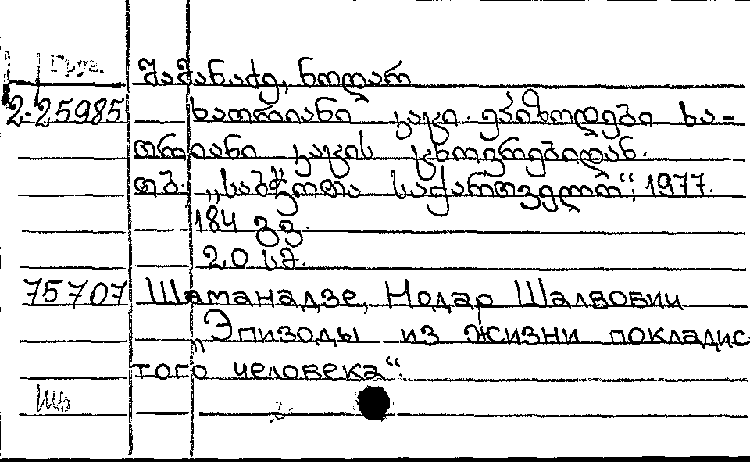 Груз.
შამანაძე, ნოდარ
2-25985 ხათრიანი კაცი. ეპიზოდები ხა-
თრიანი კაცის ცხოვრებიდან.
თბ. „საბჭოთა საქართველო“, 1977.
184 გვ.
20 სმ.
75707 Шаманадзе, Нодар Шалвович
„Эпизоды из жизни покладис
того человека“.